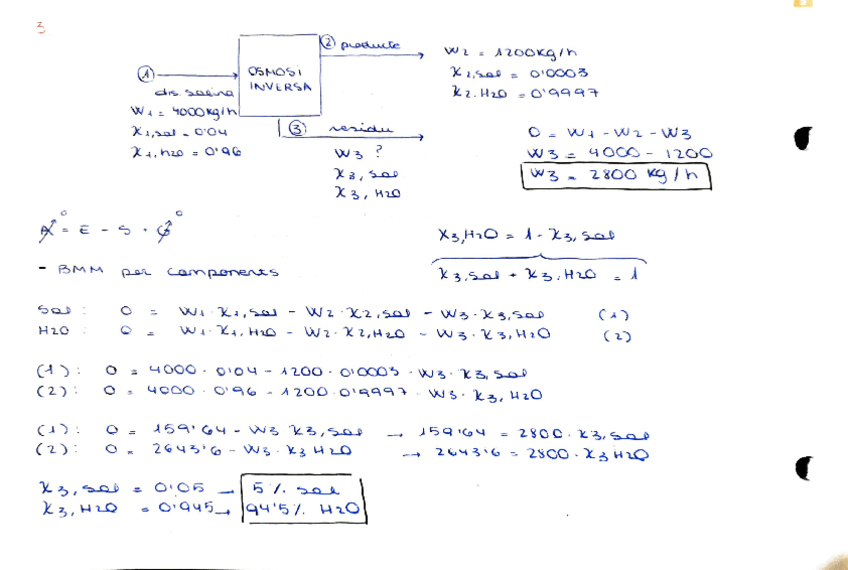 3
① dis. salina
W1 = 4000 kg/h
x1,sal = 0'04
x1,H2O = 0'96
OSMOSI
INVERSA
② producte
W2 = 1200 kg/h
x2,sal = 0'0003
x2,H2O = 0'9997
③ residu
W3 ?
x3, sal
x3, H2O
0 = W1 - W2 - W3
W3 = 4000 - 1200
W3 = 2800 kg/h
A⁰ = E - S + G⁰
x3,H2O = 1 - x3,sal
x3,sal + x3,H2O = 1
- BMM per components
Sal: 0 = W1·x1,sal - W2·x2,sal - W3·x3,sal (1)
H2O: 0 = W1·x1,H2O - W2·x2,H2O - W3·x3,H2O (2)
(1): 0 = 4000·0'04 - 1200·0'0003 - W3·x3,sal
(2): 0 = 4000·0'96 - 1200·0'9997 - W3·x3,H2O
(1): 0 = 159'64 - W3 x3,sal → 159'64 = 2800·x3,sal
(2): 0 = 2643'6 - W3·x3 H2O → 2643'6 = 2800·x3 H2O
x3,sal = 0'05 → 5% sal
x3,H2O = 0'945 → 94'5% H2O